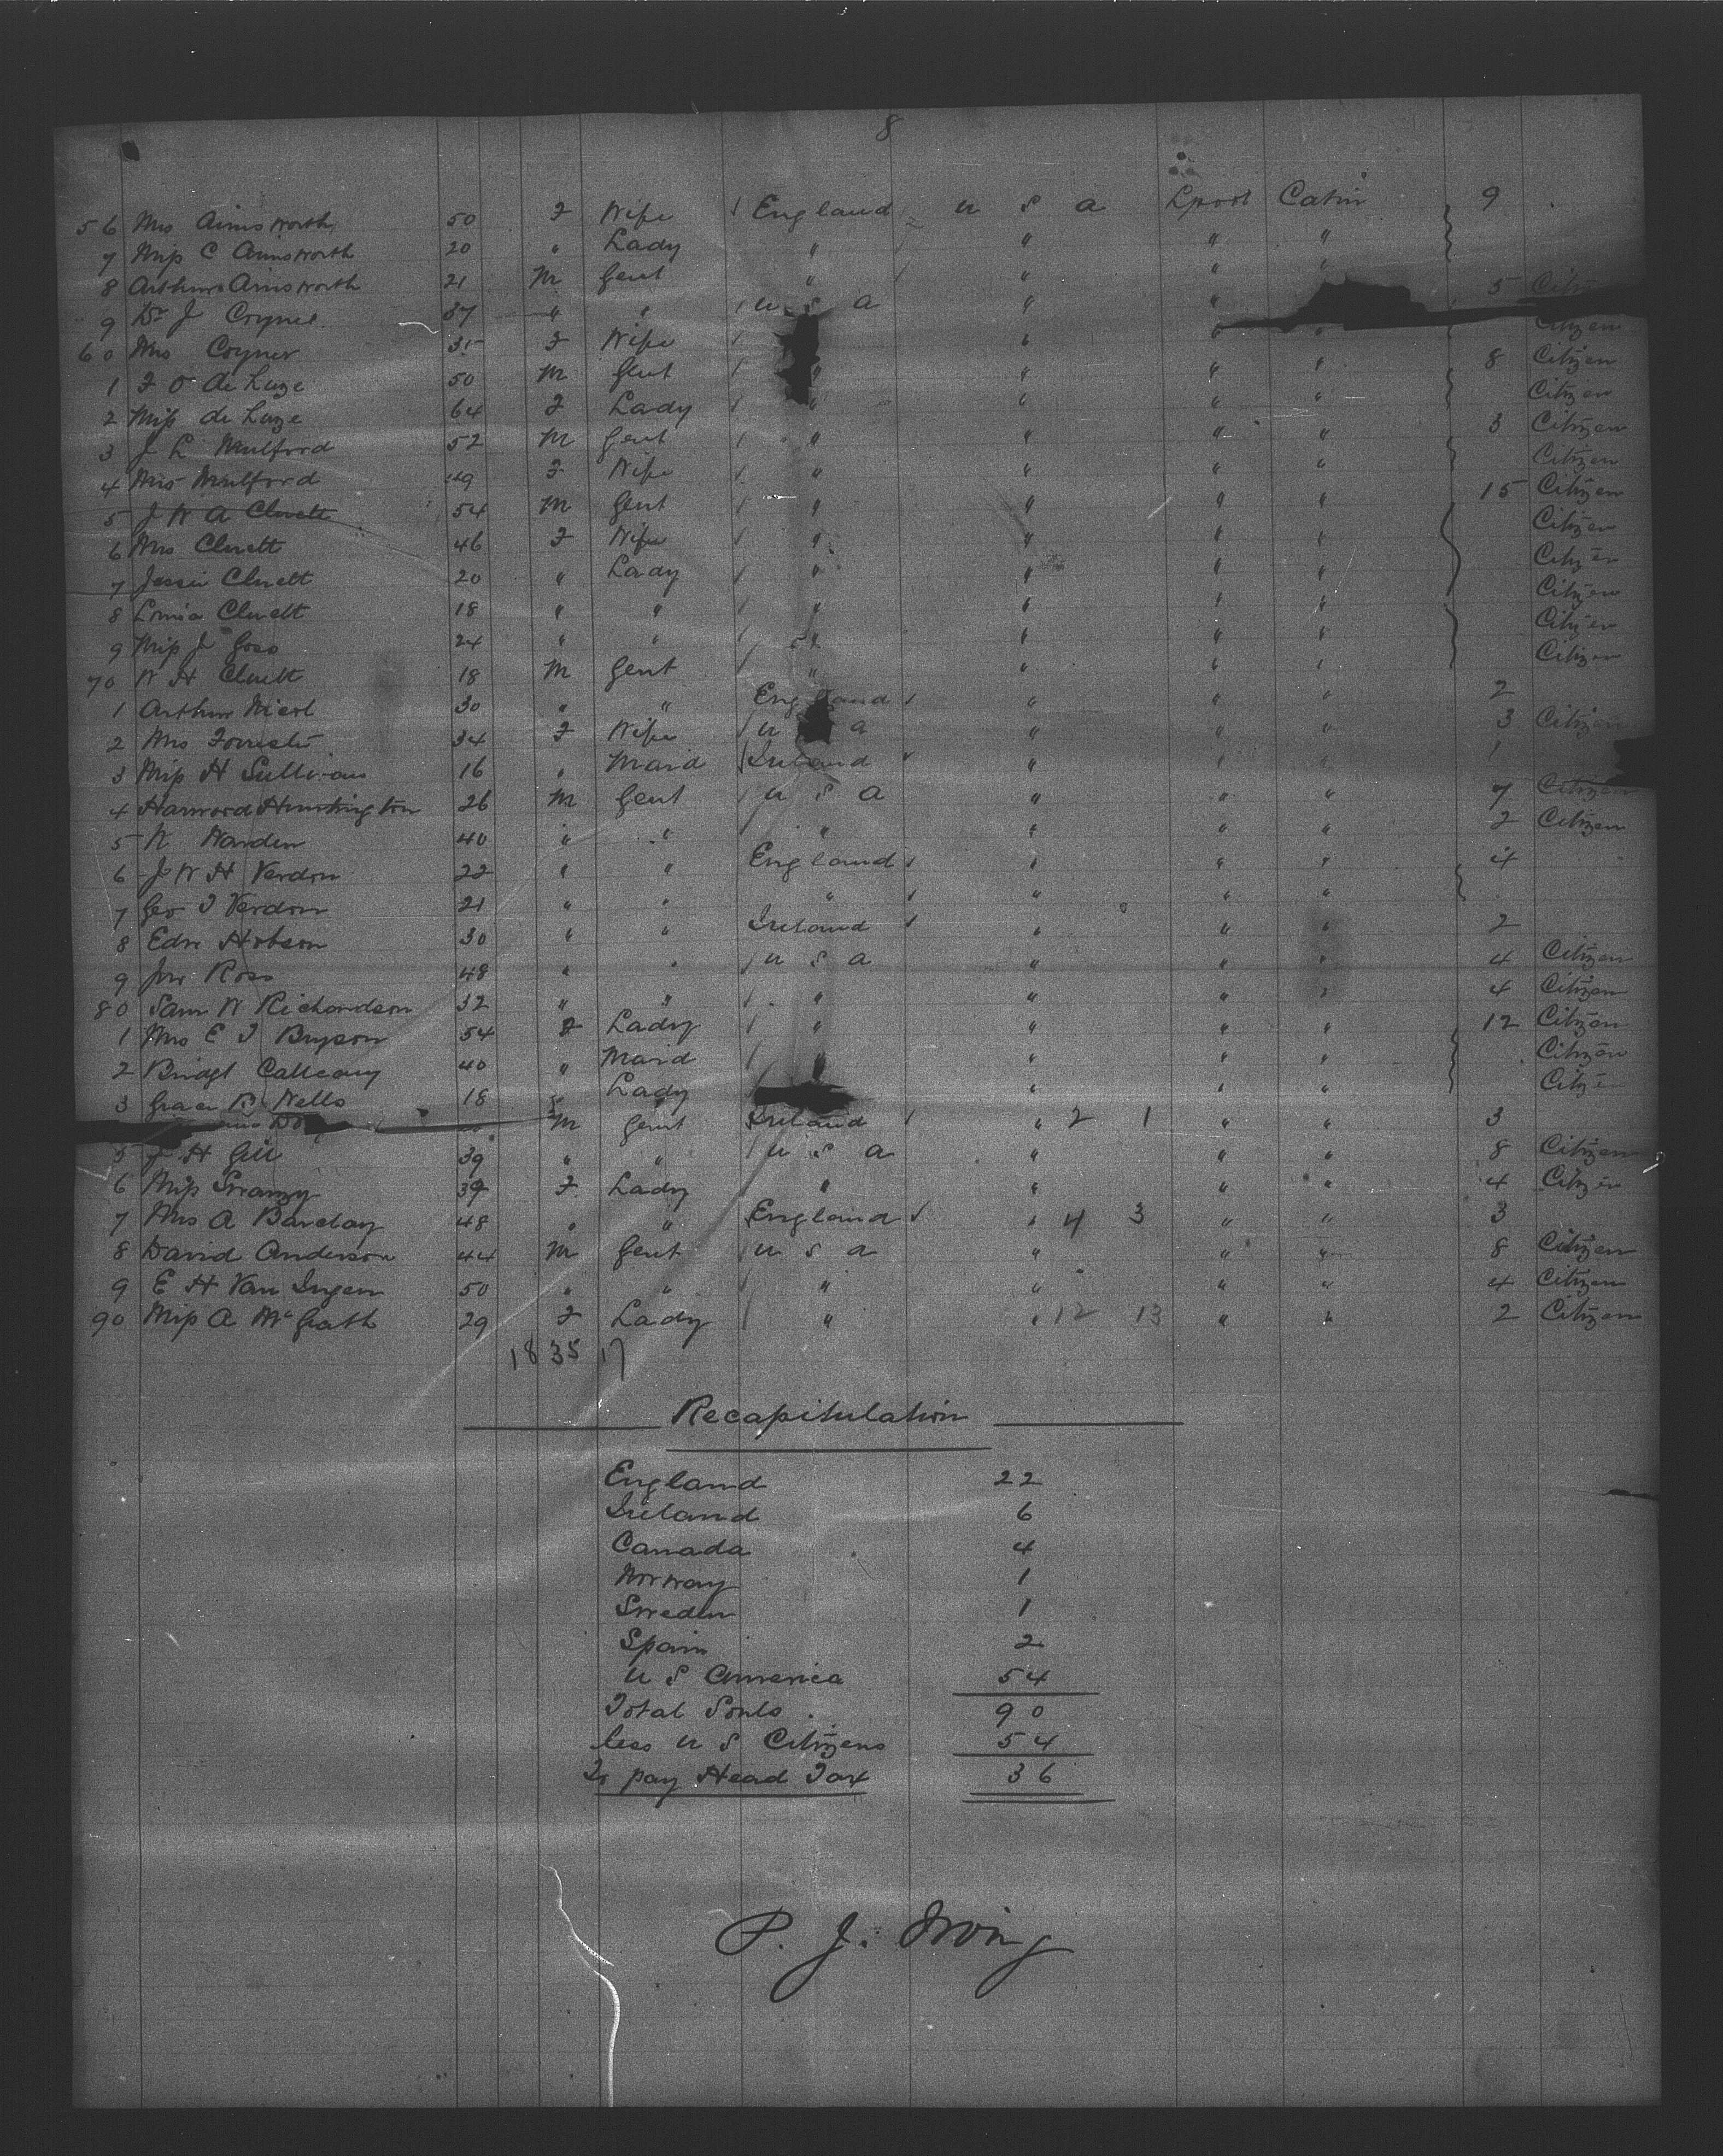 8
56 Mrs Ainsworth 50 F Wife England U S A Lpool Cabin 9
7 Miss C Ainsworth 20 " Lady " " " "
8 Arthur Ainsworth 21 M Gent " " " "
9 Dr J Coyner 37 " " U S A " " 5 Citizen
60 Mrs Coyner 35 F Wife " " " Citizen
1 F O de Luze 50 M Gent " " " " 8 Citizen
2 Miss de Luze 64 F Lady " " " " Citizen
3 J L Mulford 52 M Gent " " " " 3 Citizen
4 Mrs Mulford 49 F Wife " " " " Citizen
5 J W A Cluett 54 M Gent " " " " 15 Citizen
6 Mrs Cluett 46 F Wife " " " " Citizen
7 Jessie Cluett 20 " Lady " " " " Citizen
8 Louisa Cluett 18 " " " " " " Citizen
9 Miss J Goss 24 " " " " " " Citizen
70 W H Cluett 18 M Gent " " " " Citizen
1 Arthur Nicol 30 " " England " " " 2
2 Mrs Forrester 34 F Wife U S A " " " 3 Citizen
3 Miss H Sullivan 16 " Maid Ireland " " " 1
4 Harwood Huntington 26 M Gent U S A " " " 7 Citizen
5 W Warden 40 " " " " " " 2 Citizen
6 J W H Verdon 22 " " England " " " 4
7 Geo T Verdon 21 " " " " " "
8 Edw Hobson 30 " " Ireland " " " 2
9 Jno Ross 48 " " U S A " " " 4 Citizen
80 Sam W Richardson 32 " " " " " " 4 Citizen
1 Mrs E T Bryson 54 F Lady " " " " 12 Citizen
2 Bridgt Calleany 40 " Maid " " " " Citizen
3 Grace B Wells 18 " Lady " " " Citizen
M Gent Ireland " 2 1 " " 3
5 J H Gill 39 " " U S A " " " 8 Citizen
6 Miss Swanzy 39 F Lady " " " " 4 Citizen
7 Mrs A Barclay 48 " " England " 4 3 " " 3
8 David Anderson 44 M Gent U S A " " " 8 Citizen
9 E H Van Ingen 50 " " " " " " 4 Citizen
90 Miss A McGrath 29 F Lady " " 12 13 " " 2 Citizen
18 35 17
Recapitulation
England 22
Ireland 6
Canada 4
Norway 1
Sweden 1
Spain 2
U S America 54
Total Souls 90
less U S Citizens 54
To pay Head Tax 36
P. J. Irving